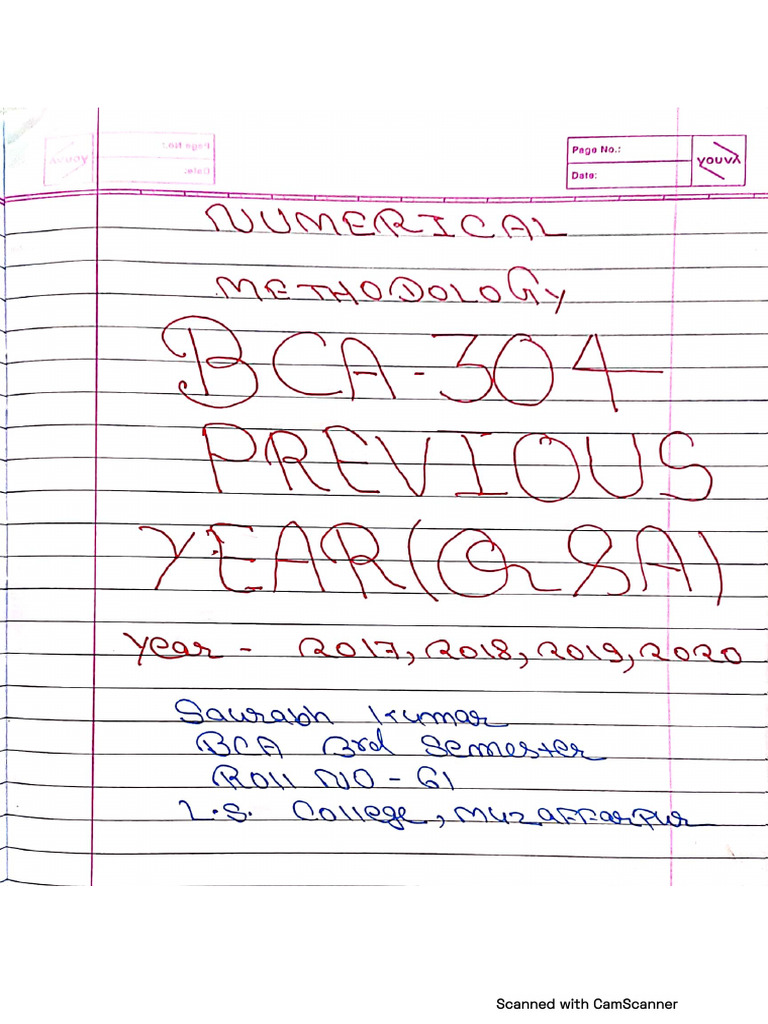 Page No.:
Date:
YOUVA
NUMERICAL
METHODOLOGY
BCA-304
PREVIOUS
YEAR (Qn & A)
Year - 2017, 2018, 2019, 2020
Saurabh Kumar
BCA 3rd Semester
Roll NO - 61
L.S. College, Muzaffarpur
Scanned with CamScanner